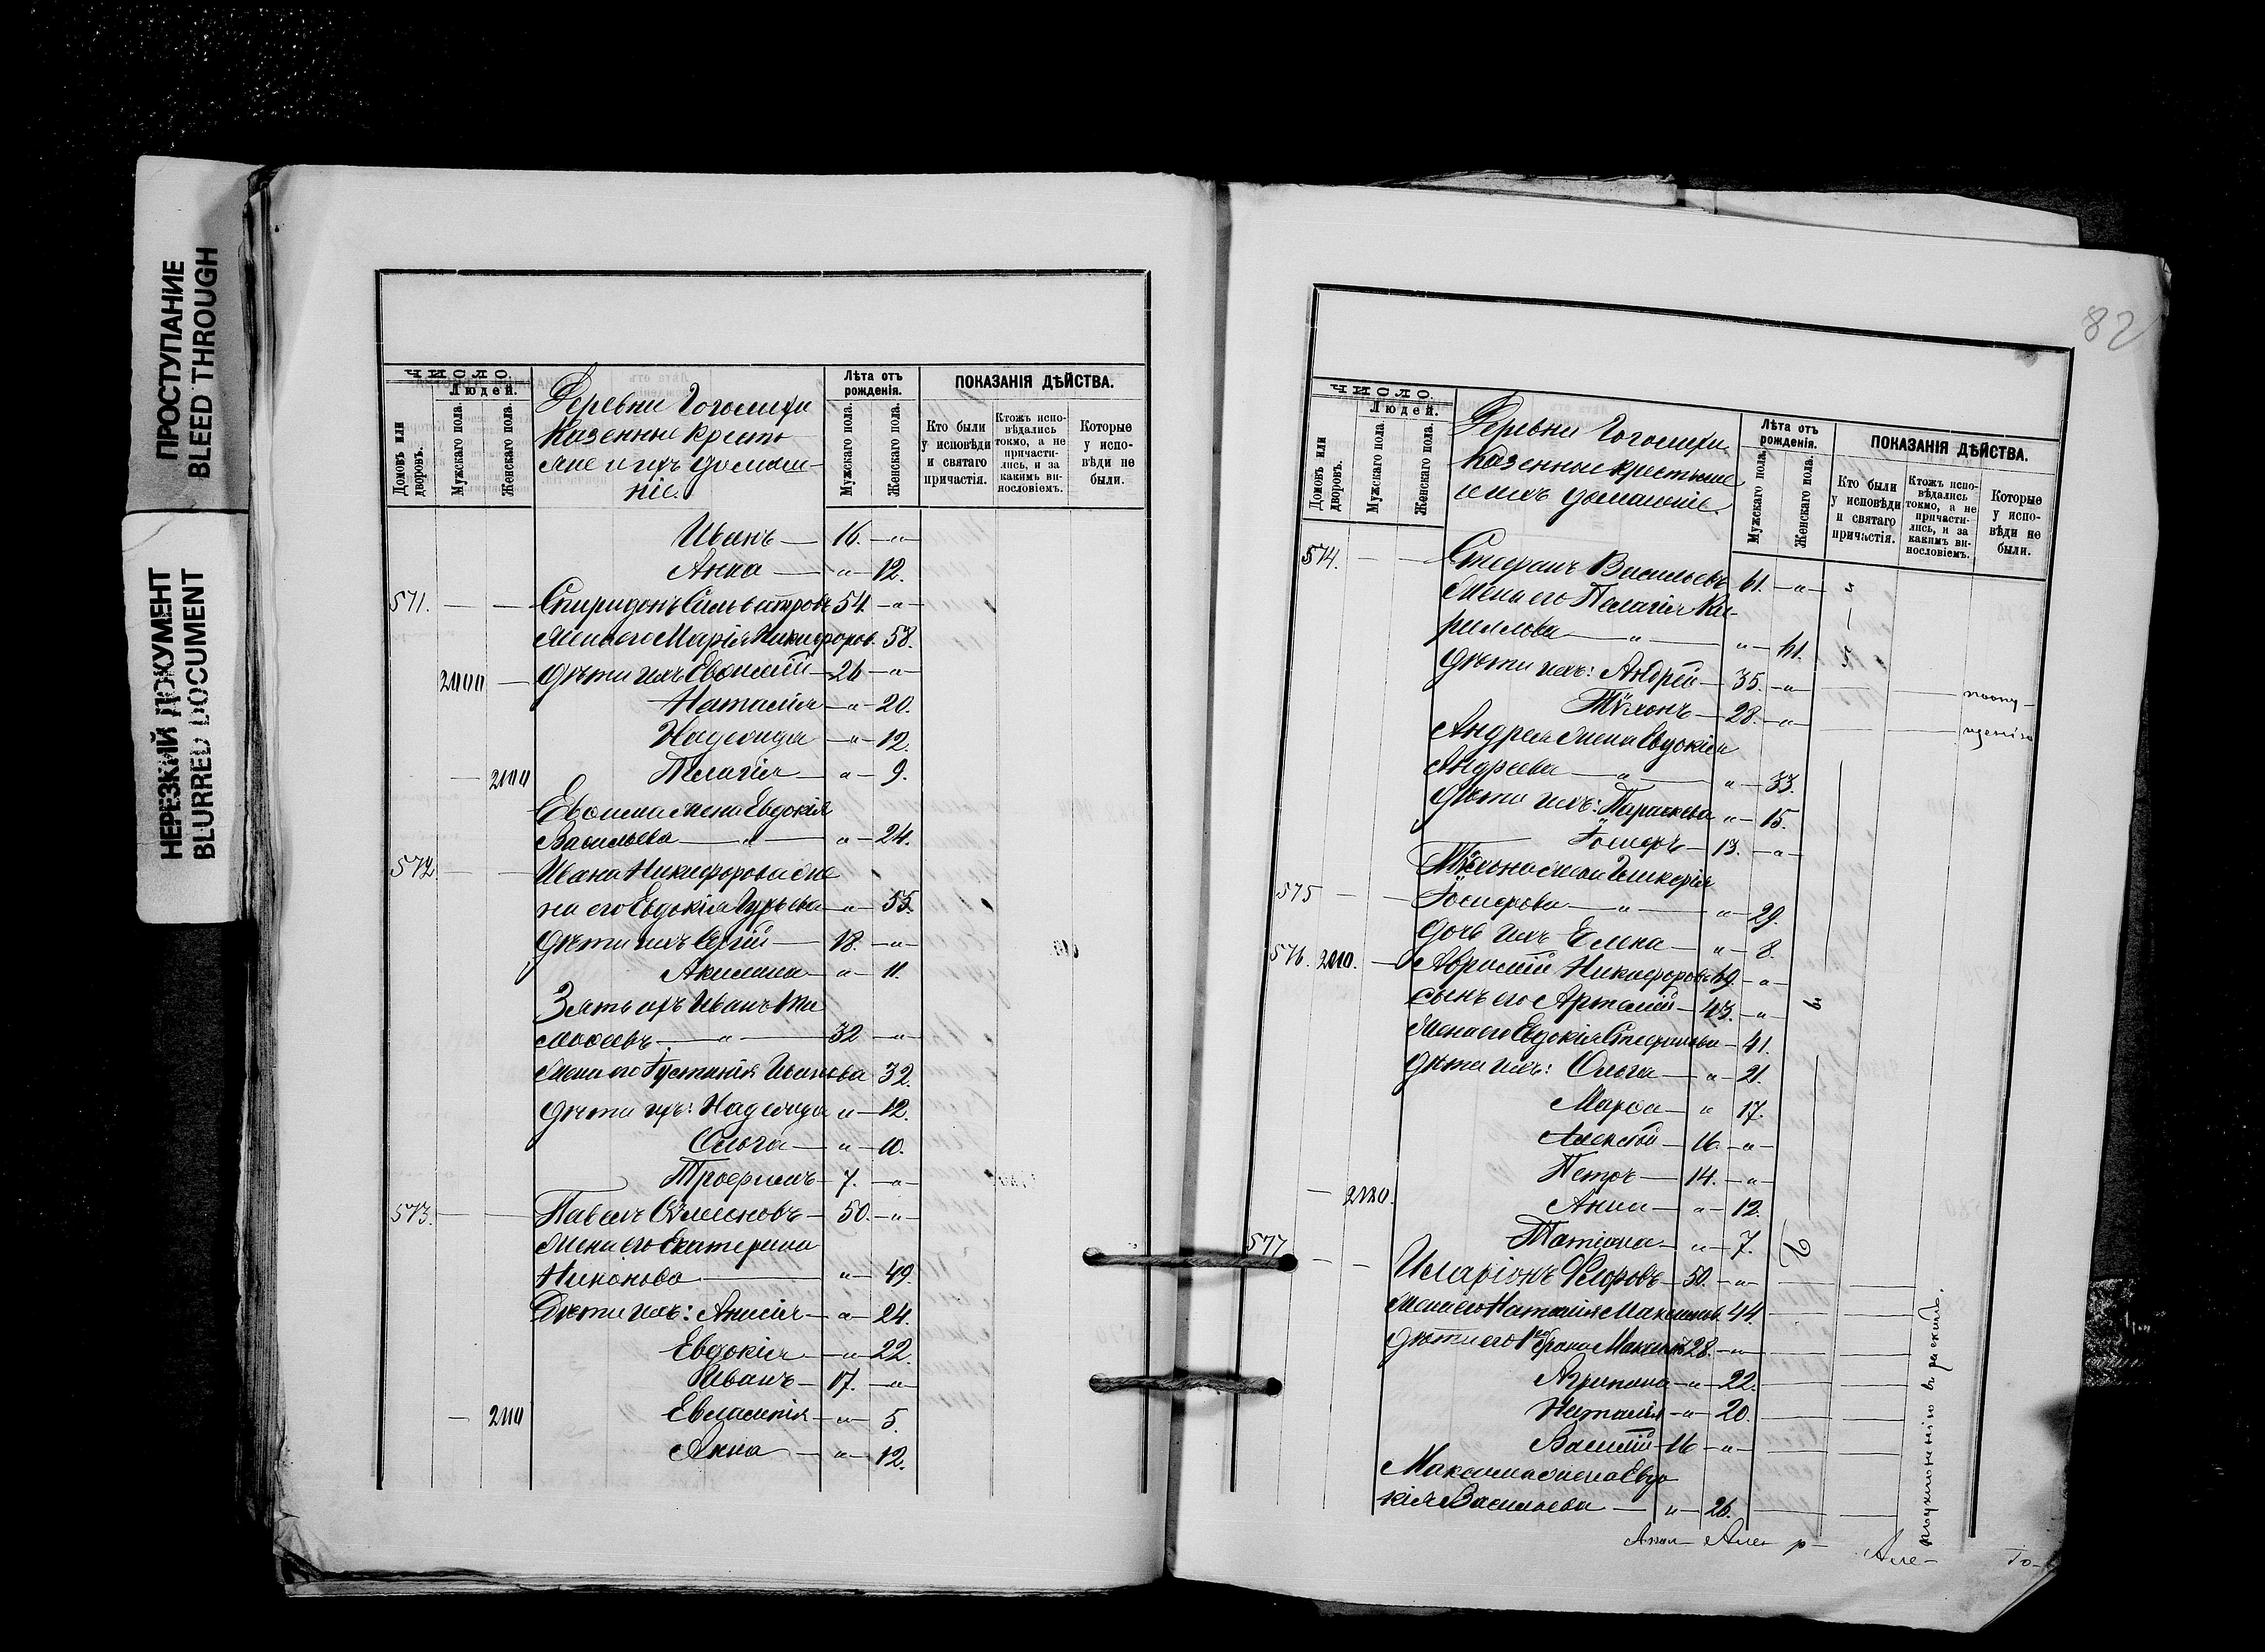 ПРОСТУПАНИЕ
BLEED THROUGH
НЕРЕЗКИЙ ДОКУМЕНТ
BLURRED DOCUMENT
ЧИСЛО.
Людей.
Домовъ или дворовъ.
Мужскаго пола.
Женскаго пола.
Деревни
Казенные кресть
яне и ихъ домаш-
ніе.
Лѣта отъ рожденія.
Мужскаго пола.
Женскаго пола.
ПОКАЗАНІЯ ДѢЙСТВА.
Кто были у исповѣди и святаго причастія.
Ктожъ испо-вѣдались токмо, а не причасти-лись, и за какимъ ви-нословіемъ.
Которые у испо-вѣди не были.
Иванъ — 16. — "
Анна — " — 12.
571. — — Спиридонъ Сильвестровъ 54. — " —
Жена его Марія Никифоров. 58.
дѣти ихъ Евѳимій — 26 — "
Наталія — " — 20.
Надежда — " — 12.
Пелагія — " — 9.
Евѳима жена Евдокія
Васильева — " — " — 24.
572. — — Ивана Никифорова же
на его Евдокія Гурьева — " — 55.
дѣти ихъ Сергій — 18. — "
Акилина — " — 11.
Зять ихъ Иванъ Ти
моѳеевъ. — " — 32 — "
Жена его Іустинія Иванова 32.
дѣти ихъ: Надежда " — 12.
Ольга — " — 10.
Трофимъ — 7. — "
573. — — Павелъ — 50. — "
Жена его Екатерина
Никонова — " — 49.
Дѣти ихъ: Анисія — " — 24.
Евдокія — " — 22.
Иванъ — 17. — "
Евлампія — " — 5.
Анна — " — 12.
82
ЧИСЛО.
Людей.
Домовъ или дворовъ.
Мужскаго пола.
Женскаго пола.
Деревни
Казенные крестьяне
и ихъ домашніе.
Лѣта отъ рожденія.
Мужскаго пола.
Женскаго пола.
ПОКАЗАНІЯ ДѢЙСТВА.
Кто были у исповѣди и святаго причастія.
Ктожъ испо-вѣдались токмо, а не причасти-лись, и за какимъ ви-нословіемъ.
Которые у испо-вѣди не были.
574. — — Стефанъ Васильевъ 61. — "
Жена его Пелагія Ки-
риллова — " — " — 61.
дѣти ихъ: Андрей — 35. — "
Тихонъ — 28. — "
Андрея жена Евдокія
Андреева — " — " — 33.
дѣти ихъ: Параскева " — 15.
13. — "
Тихона жена Гликерія
575 — — " — " — 29.
дочь ихъ Елена — " — 8.
576. Никифоровъ 69. — "
сынъ его Артемій — 43. — "
Жена его Евдокія Стефанова — 41.
дѣти ихъ: Ольга — " — 21.
Марѳа — " 17.
Алексѣй — 16. — "
Петръ — 14. — "
Анна — " — 12.
Татіана — " — 7.
577 — — Иларіонъ — 50. — "
Жена его Наталія Максимов. 44.
дѣти его Максимъ 28. — "
Агрипина — " — 22.
Наталія — " — 20.
Василій — 16 — "
Максима жена Евдо
кія Васильева — " — 26.